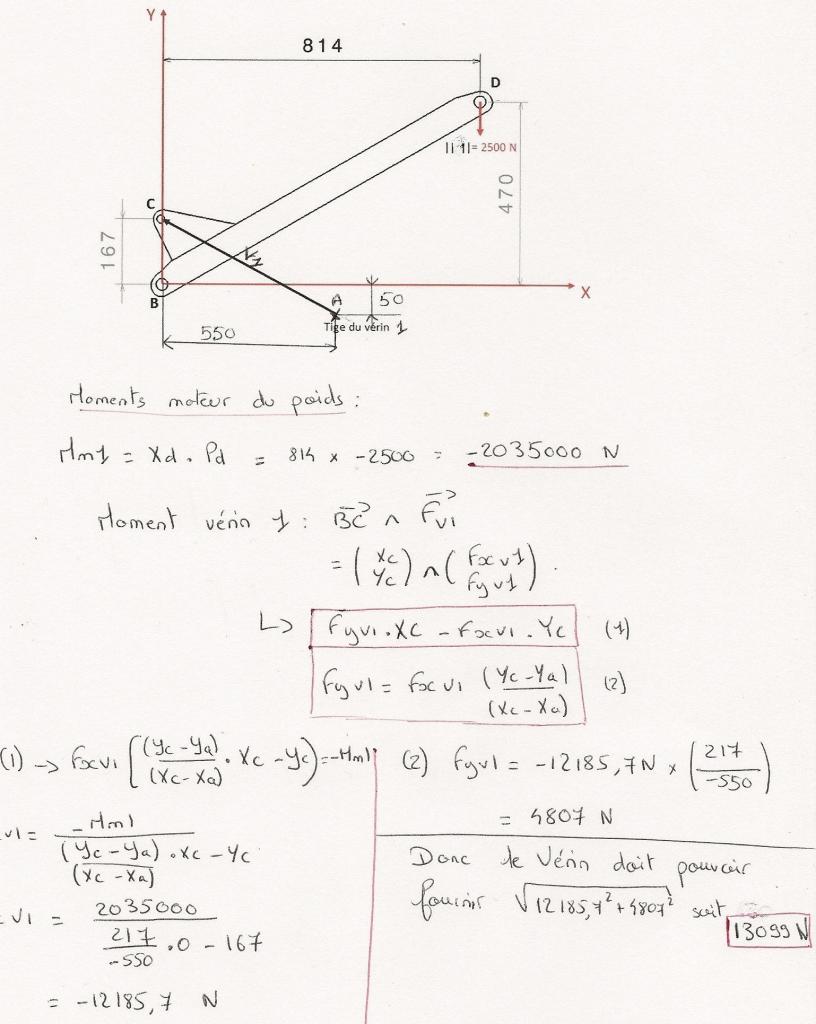 Y
814
D
||1||= 2500 N
470
C
167
V1
B
X
A
50
Tige du vérin 1
550
Moments moteur du poids :
Mm1 = Xd . Pd = 814 x -2500 = -2035000 N
Moment vérin 1 : BC ∧ Fv1
= (xc Yc) ∧ (Fxv1 Fyv1) .
↳ Fyv1 . XC - Fxv1 . Yc (1)
Fyv1 = Fxv1 (Yc-Ya)/(Xc-Xa) (2)
(1) → Fxv1 [(Yc-Ya)/(Xc-Xa) . Xc - Yc) = -Mm1
v1 = -Mm1/((Yc-Ya)/(Xc-Xa) . Xc - Yc)
v1 = 2035000/(217/-550 . 0 - 167)
= -12185,7 N
(2) Fyv1 = -12185,7N x (217/-550)
= 4807 N
Donc le Vérin doit pouvoir
fournir √12185,7² + 4807² soit
13099 N